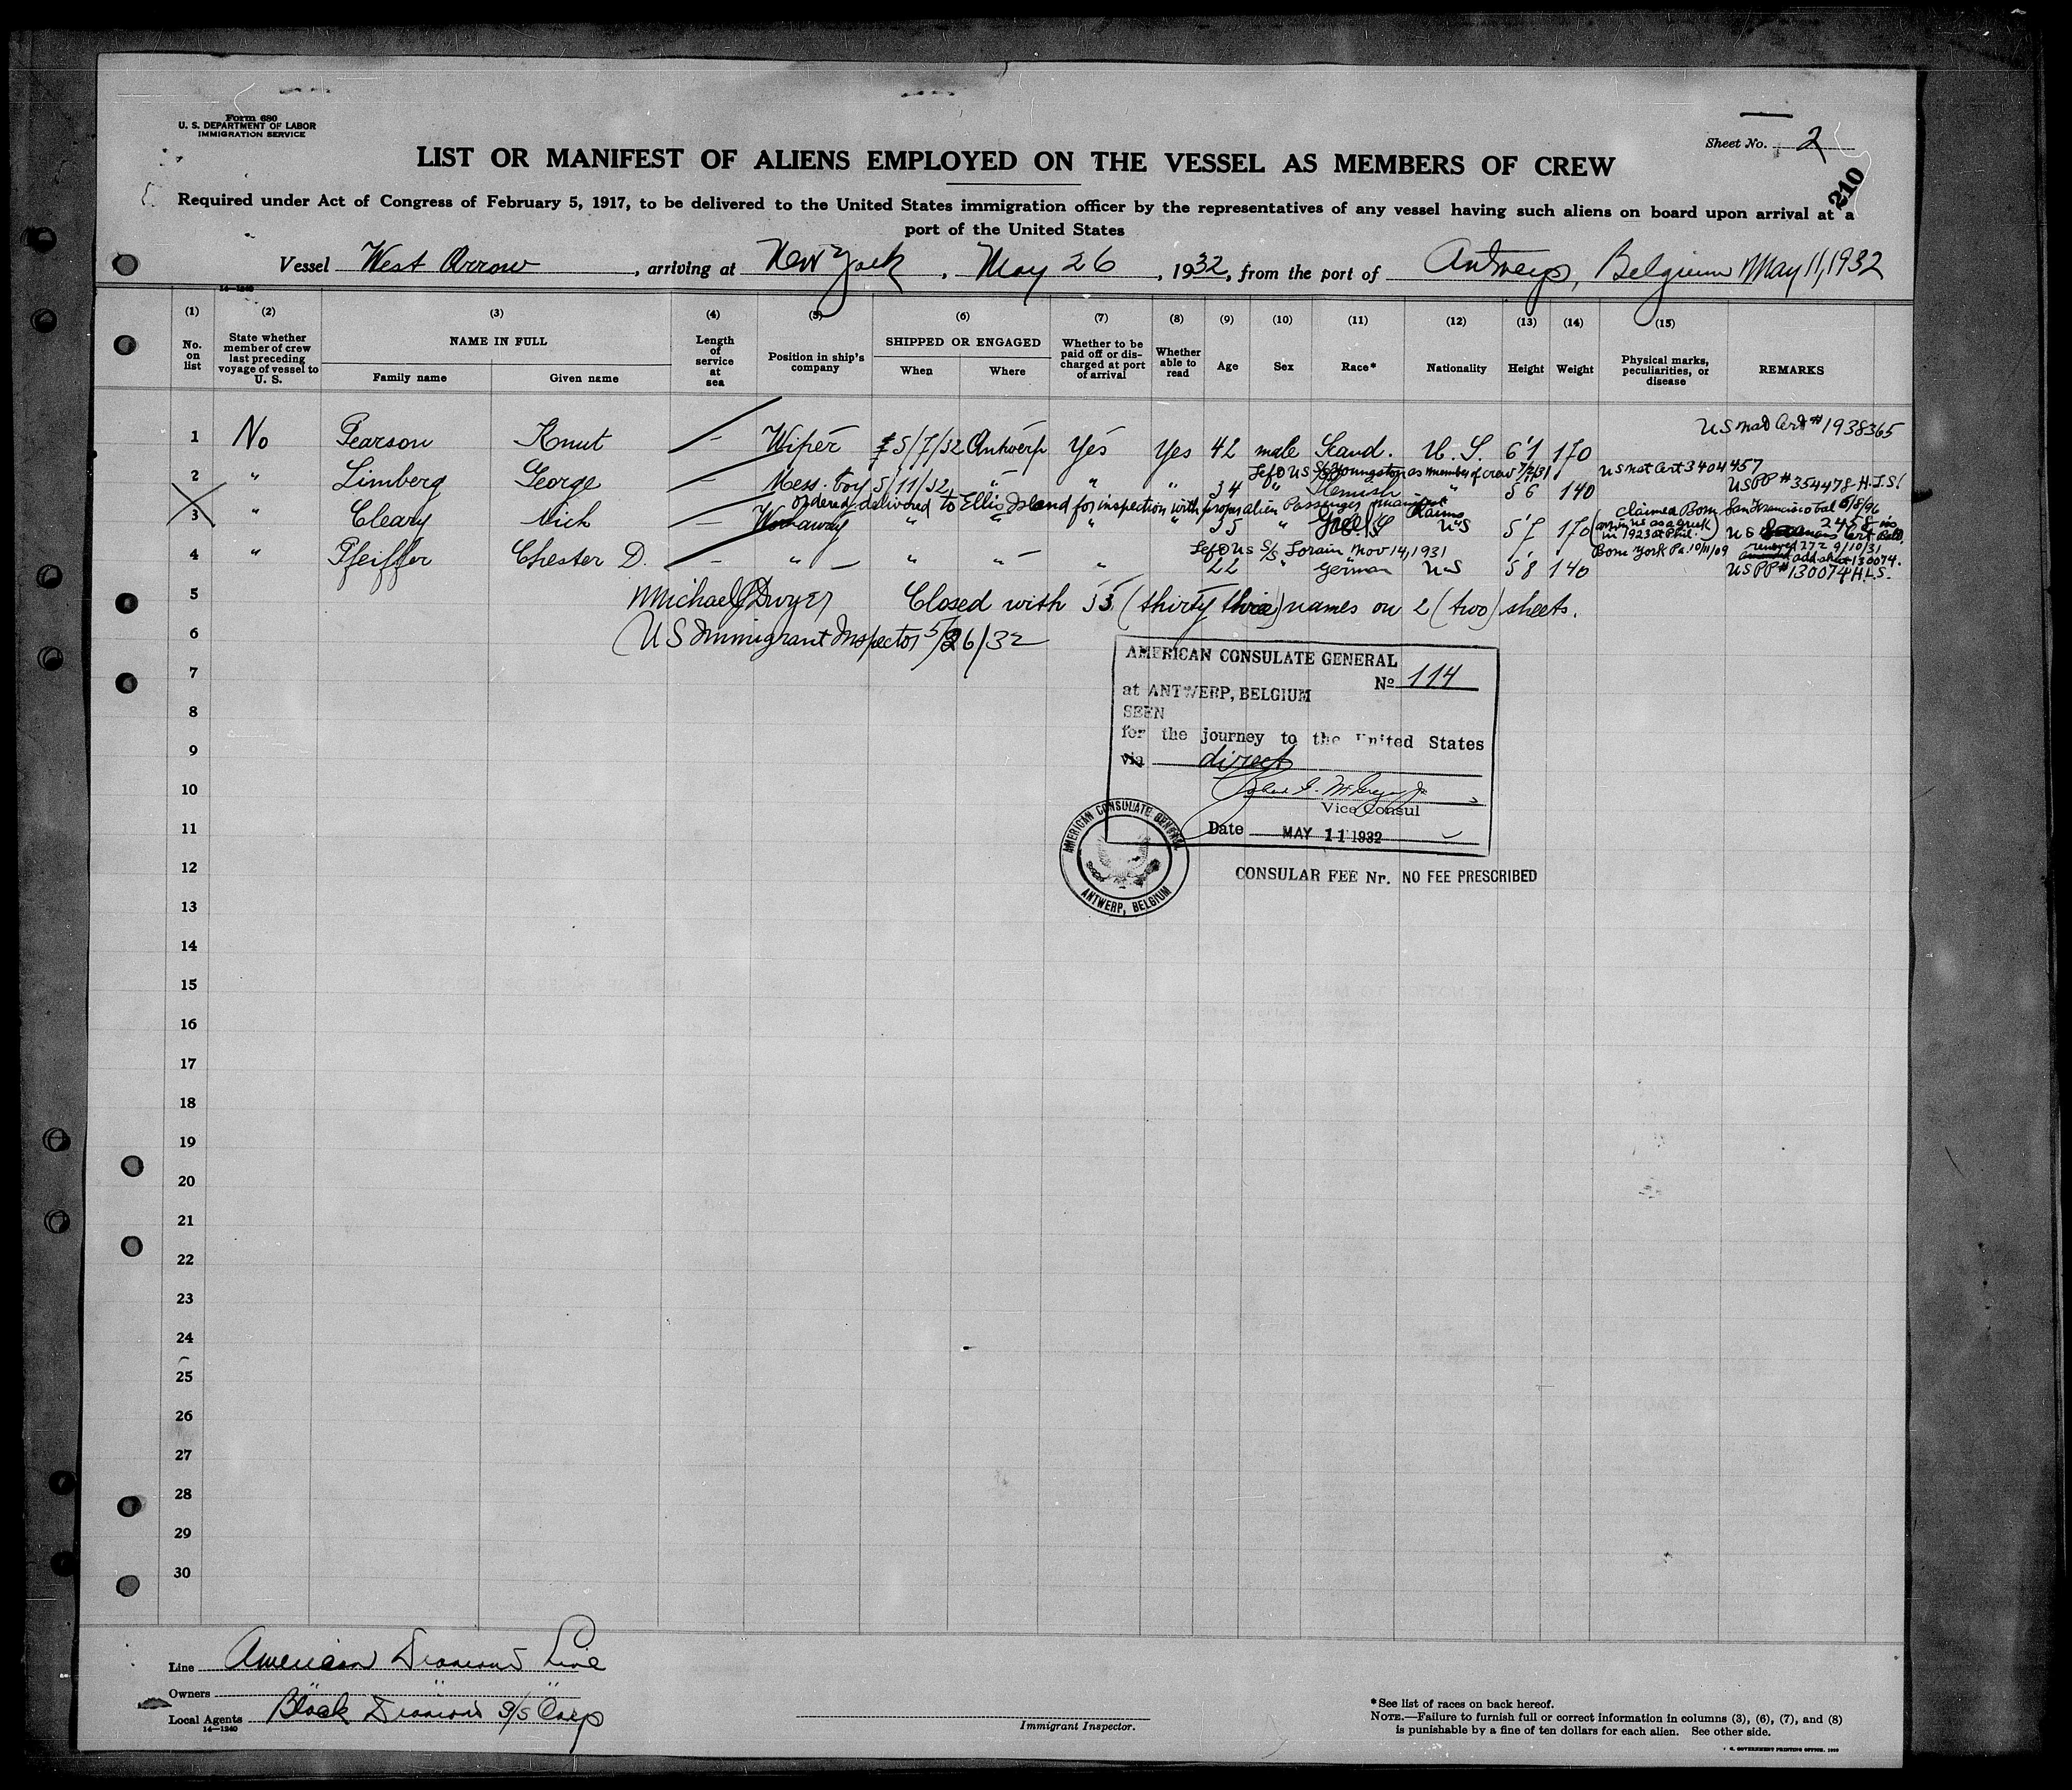 Form 680
U. S. DEPARTMENT OF LABOR
IMMIGRATION SERVICE
Sheet No. 2
210
LIST OR MANIFEST OF ALIENS EMPLOYED ON THE VESSEL AS MEMBERS OF CREW
Required under Act of Congress of February 5, 1917, to be delivered to the United States immigration officer by the representatives of any vessel having such aliens on board upon arrival at a
port of the United States
Vessel West Arrow, arriving at New York, May 26, 1932, from the port of Antwerp, Belgium May 11, 1932
14—1240
(1) (2) (3) (4) (5) (6) (7) (8) (9) (10) (11) (12) (13) (14) (15)
No. on list
State whether member of crew last preceding voyage of vessel to U. S.
NAME IN FULL
Family name
Given name
Length of service at sea
Position in ship's company
SHIPPED OR ENGAGED
When
Where
Whether to be paid off or discharged at port of arrival
Whether able to read
Age
Sex
Race*
Nationality
Height
Weight
Physical marks, peculiarities, or disease
REMARKS
US Nat Cert # 1938365
1 No Pearson Knut – Wiper 5/7/32 Antwerp Yes Yes 42 male Scand. U. S. 6'1 170
Left US S/S Youngstown as member of crew 7/2/31 US Nat Cert 3404457
2 " Limberg George – Mess-boy 5/11/32 " " " 34 " Flemish " 5 6 140 USPP # 354478 H.I.S.
Ordered delivered to Ellis Island for inspection with proper alien Passenger manifest Claims
Claimed Born San Francisco Cal 6/8/96
3 " Cleary Nick – Workaway " " " " 35 " Greek US 5'7 170 (arriv US as a Greek in 1923 at Phil.)
Left US S/S Lorain Nov 14, 1931 Born York Pa. 10/11/09
4 " Pfeiffer Chester D. – " – " " " 22 " German US 5 8 140 USPP # 130074 H.I.S.
5 Michael J Dwyer Closed with 33 (thirty three) names on 2 (two) sheets.
6 US Immigrant Inspector 5/26/32
7
8
9
10
11
12
13
14
15
16
17
18
19
20
21
22
23
24
25
26
27
28
29
30
AMERICAN CONSULATE GENERAL
No 114
at ANTWERP, BELGIUM
SEEN
for the journey to the United States
via direct
Vice Consul
Date MAY 11 1932
AMERICAN CONSULATE GENERAL
ANTWERP, BELGIUM
CONSULAR FEE Nr. NO FEE PRESCRIBED
Line American Diamond Line
Owners " " "
Local Agents Black Diamond S/S Corp
14—1240
Immigrant Inspector.
*See list of races on back hereof.
NOTE.—Failure to furnish full or correct information in columns (3), (6), (7), and (8)
is punishable by a fine of ten dollars for each alien. See other side.